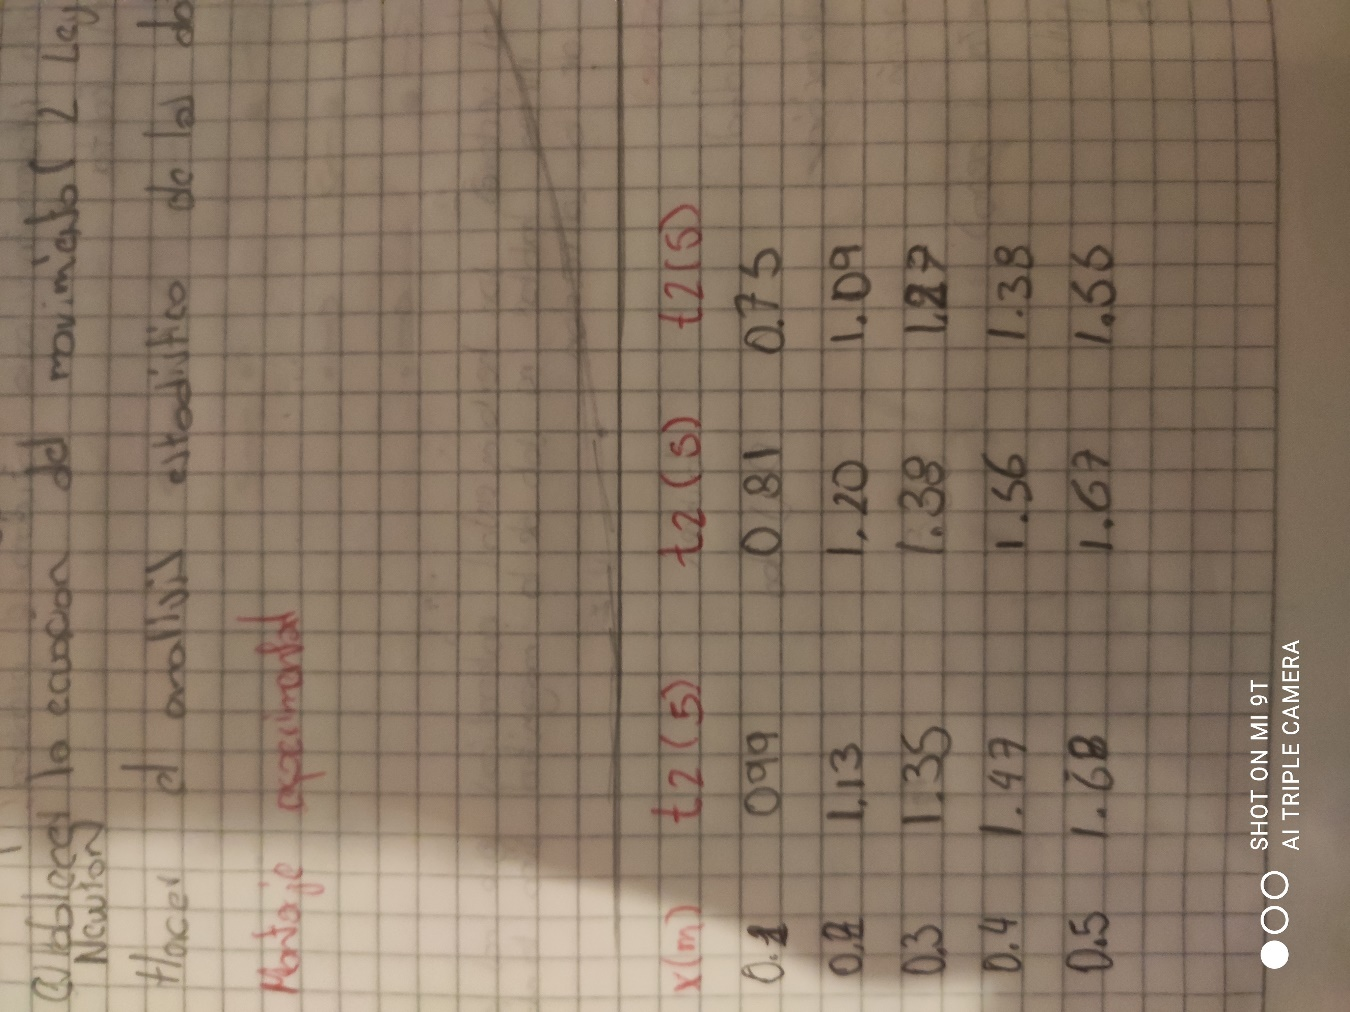 Establecer la ecuación del movimiento ( 2 Ley
Newton)
Hacer el analisis estadistico de la do
Montaje experimental
x(m) t2(s) t2(s) t2(s)
0.1 099 0 81 0.75
0.2 1.13 1.20 1.09
0.3 1.35 1.38 1.27
0.4 1.47 1.56 1.38
0.5 1.68 1.67 1.56
SHOT ON MI 9T
AI TRIPLE CAMERA